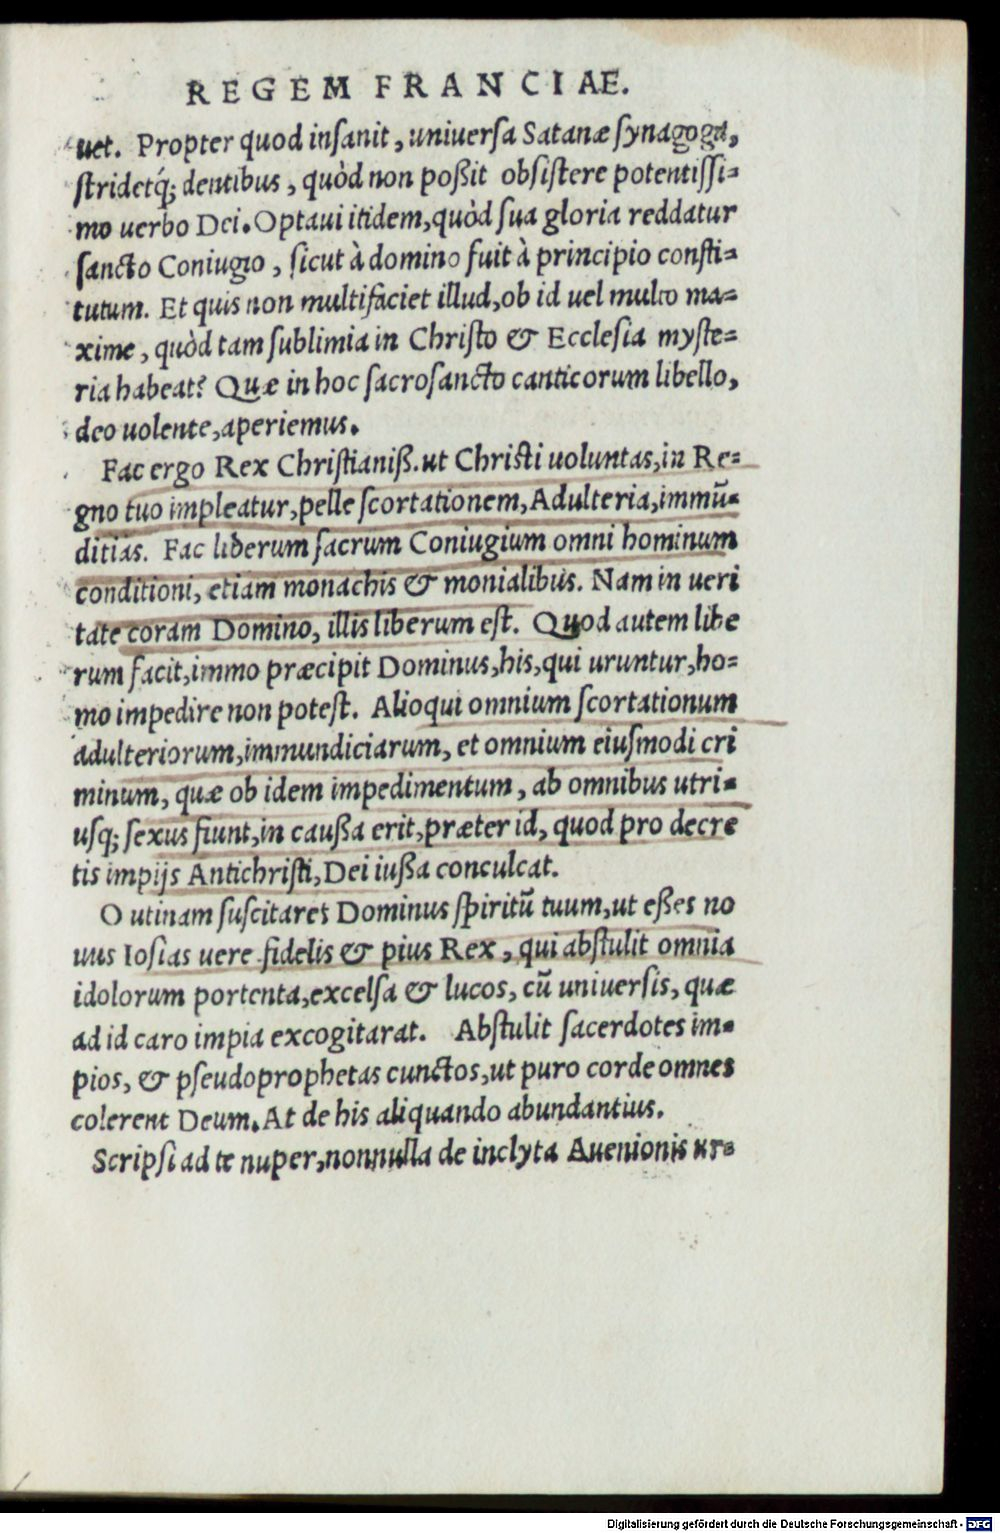 REGEM FRANCIAE.
uet. Propter quod inſanit, uniuerſa Satanæ ſynagoga,
ſtridetq́; dentibus, quòd non poßit obſiſtere potentiſſi=
mo uerbo Dei. Optaui itidem, quòd ſua gloria reddatur
ſancto Coniugio, ſicut à domino fuit à principio conſti=
tutum. Et quis non multifaciet illud, ob id uel multo ma=
xime, quòd tam ſublimia in Chriſto & Eccleſia myſte=
ria habeat? Quæ in hoc ſacroſancto canticorum libello,
deo uolente, aperiemus.
Fac ergo Rex Chriſtianiß. ut Chriſti uoluntas, in Re=
gno tuo impleatur, pelle ſcortationem, Adulteria, immū=
ditias. Fac liberum ſacrum Coniugium omni hominum
conditioni, etiam monachis & monialibus. Nam in ueri
tate coram Domino, illis liberum eſt. Quod autem libe
rum facit, immo præcipit Dominus, his, qui uruntur, ho=
mo impedire non poteſt. Alioqui omnium ſcortationum
adulteriorum, immundiciarum, et omnium eiuſmodi cri
minum, quæ ob idem impedimentum, ab omnibus utri=
uſq; ſexus fiunt, in caußa erit, præter id, quod pro decre
tis impijs Antichriſti, Dei iußa conculcat.
O utinam ſuſcitaret Dominus ſpiritū tuum, ut eßes no
uus Ioſias uere fidelis & pius Rex, qui abſtulit omnia
idolorum portenta, excelſa & lucos, cū uniuerſis, quæ
ad id caro impia excogitarat. Abſtulit ſacerdotes im=
pios, & pſeudoprophetas cunctos, ut puro corde omnes
colerent Deum. At de his aliquando abundantius.
Scripſi ad te nuper, nonnulla de inclyta Auenionis ur=
Digitalisierung gefördert durch die Deutsche Forschungsgemeinschaft - DFG